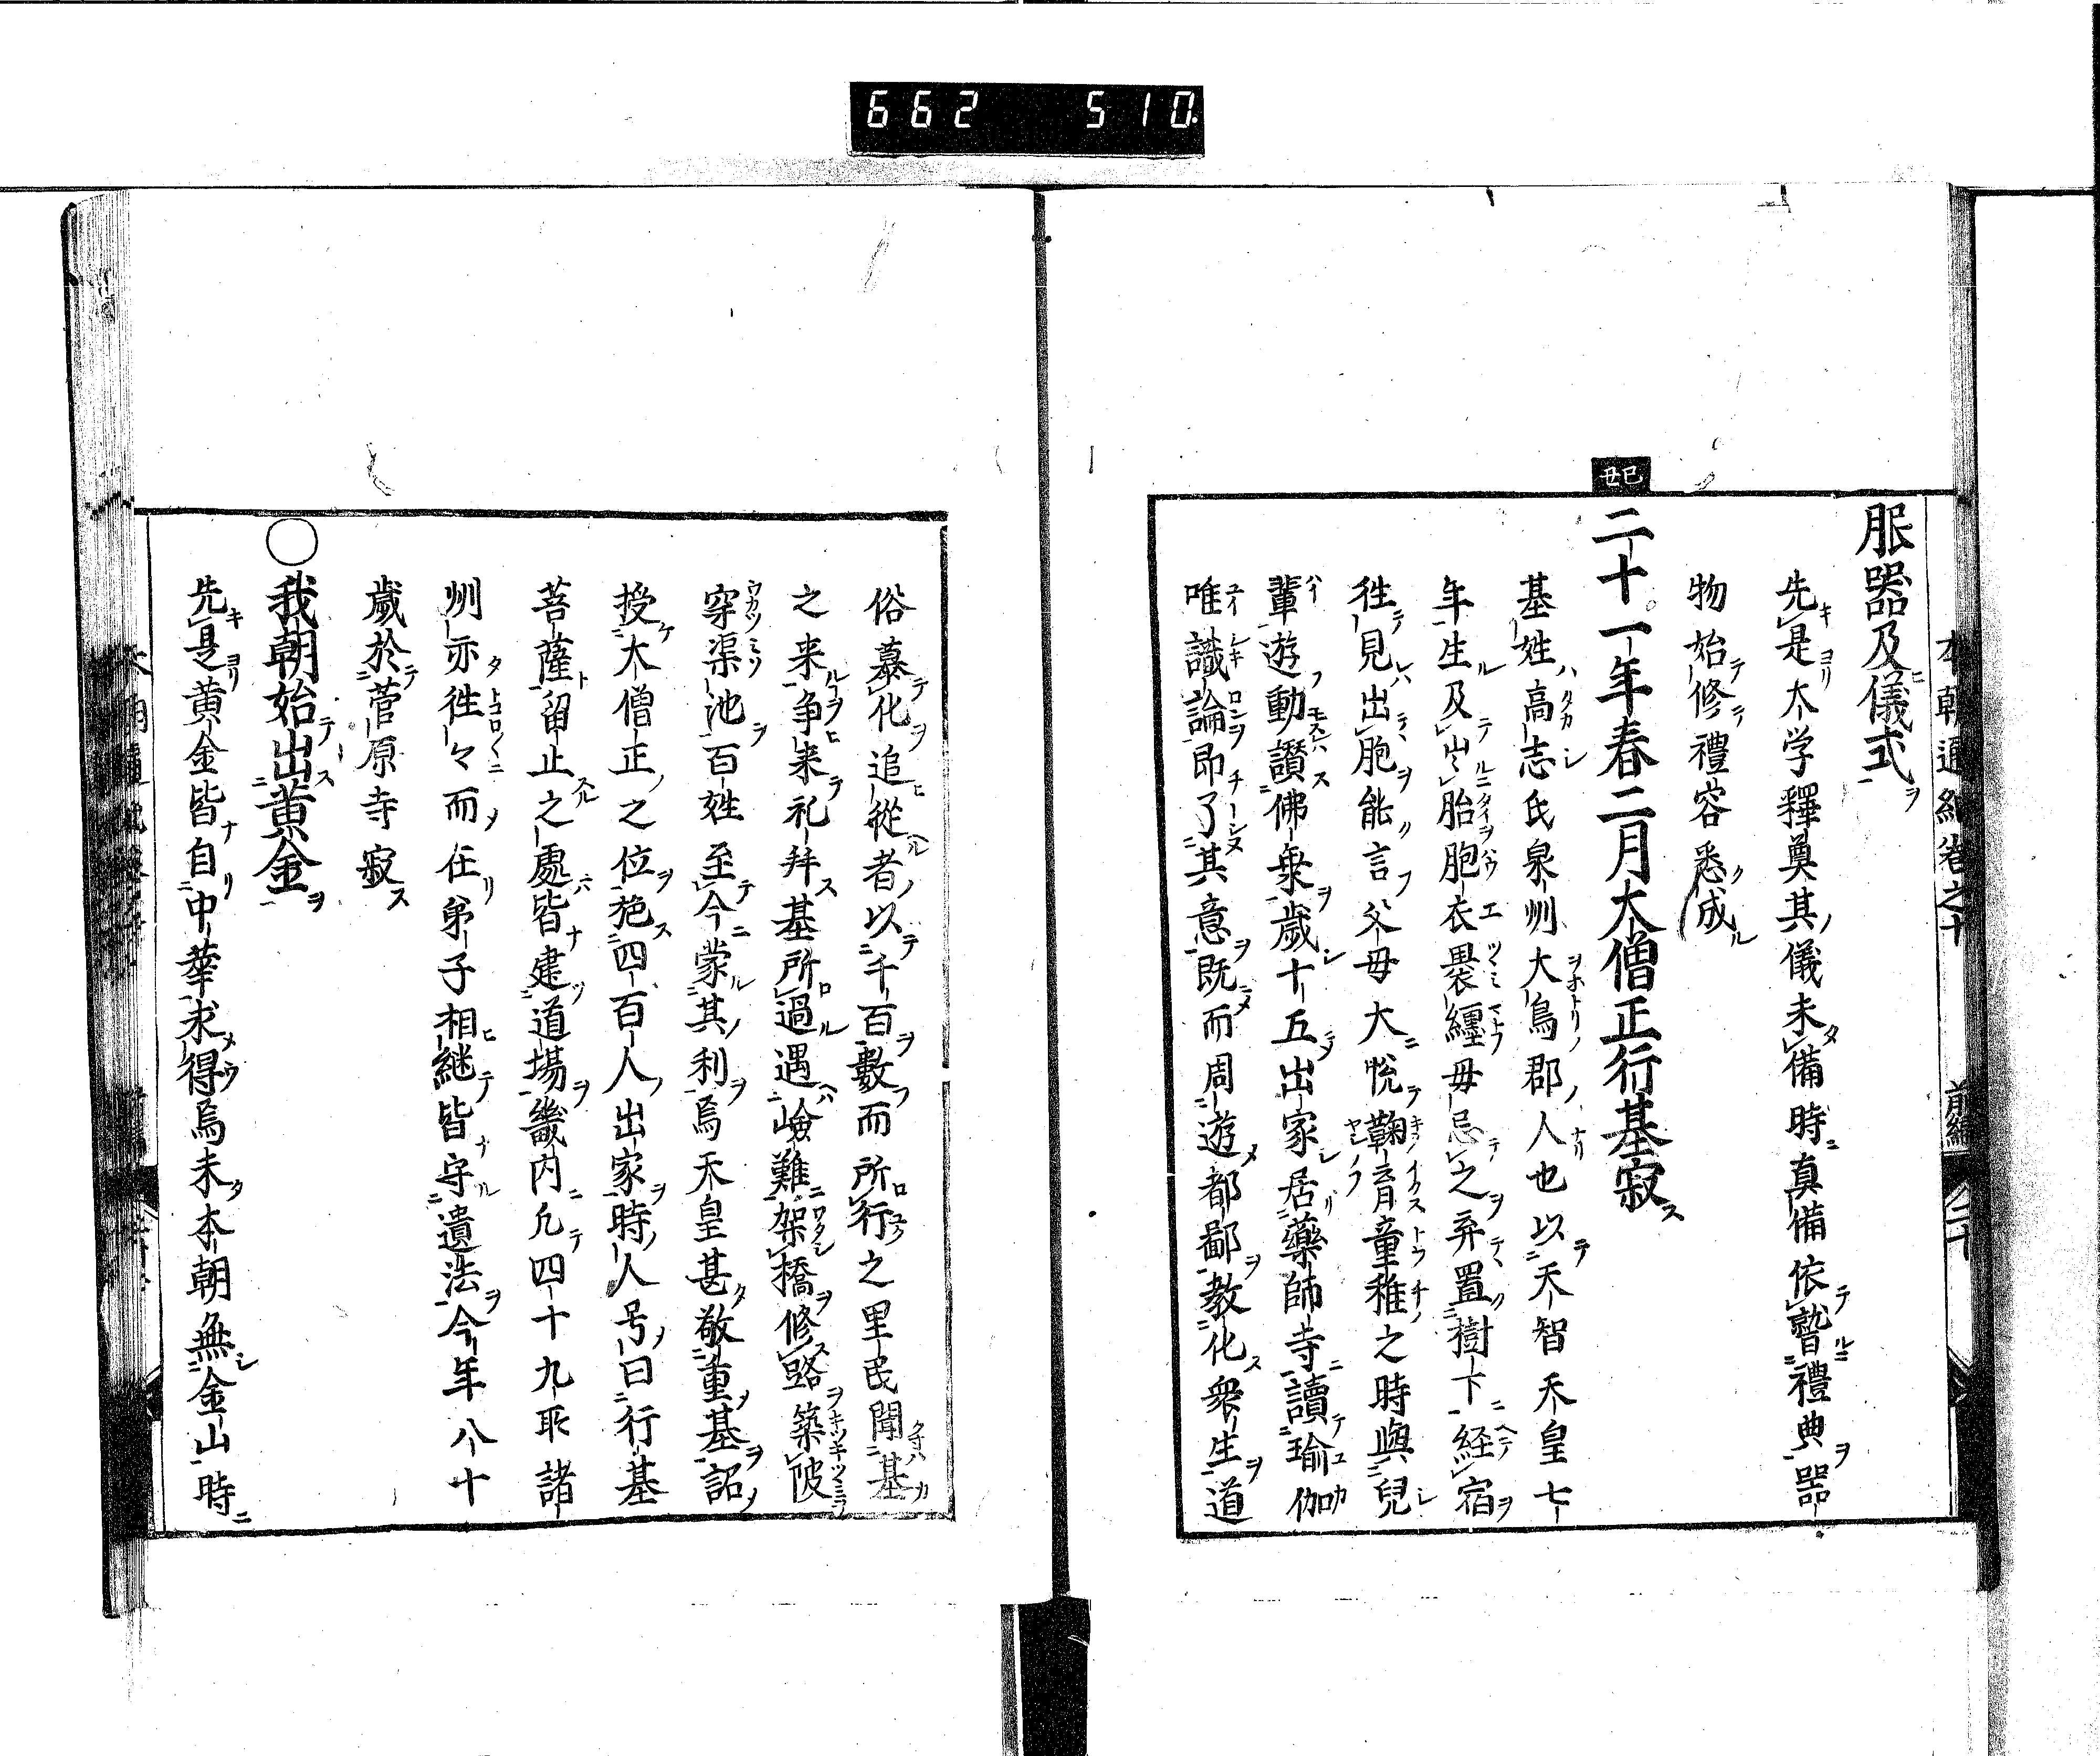 662 510
本朝通紀卷之十 前編 二十
服器及儀式
先是大学釋奠其儀未備時真備依瞽禮典器
物始修禮容悉成
己丑
二十一年春二月大僧正行基寂
基姓高志氏泉州大鳥郡人也以天智天皇七
年生及出胎胞衣褁纒母忌之弃置樹下経宿
徃見出胞能言父母大悦鞠育童稚之時與兒
輩遊動讃佛衆歳十五出家居藥師寺讀瑜伽
唯識論即了其意既而周遊都鄙教化衆生道
俗慕化追從者以千百數而所行之里民聞基
之来争来礼拜基所過遇嶮難架橋修路築陂
穿渠池百姓至今蒙其利焉天皇甚敬重基詔
授大僧正之位施四百人出家時人号曰行基
菩薩留止之處皆建道場畿内凢四十九所諸
州亦徃々而在弟子相継皆守遺法今年八十
歳於菅原寺寂
○我朝始出黄金
先是黄金皆自中華求得焉未本朝無金山時